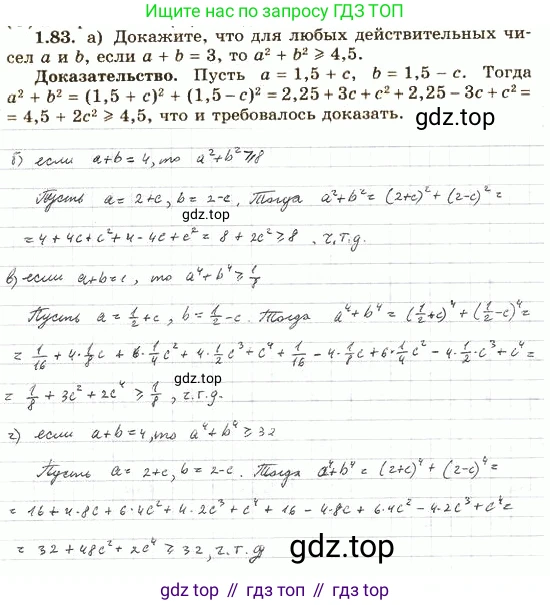 Появились вопросы? Задавай в ТГ bot
1.83. а) Докажите, что для любых действительных чи-
сел a и b, если a + b = 3, то a² + b² ⩾ 4,5.
Доказательство. Пусть a = 1,5 + c, b = 1,5 − c. Тогда
a² + b² = (1,5 + c)² + (1,5 − c)² = 2,25 + 3c + c² + 2,25 − 3c + c² =
= 4,5 + 2c² ⩾ 4,5, что и требовалось доказать.
б) если a+b=4, то a²+b²⩾8
gdz.top
Пусть a=2+c, b=2-c. Тогда a²+b²=(2+c)²+(2-c)²=
gdz.top
=4+4c+c²+4-4c+c²=8+2c²⩾8, ч.т.д.
в) если a+b=1, то a⁴+b⁴⩾1/8
Пусть a=1/2+c, b=1/2-c. Тогда a⁴+b⁴=(1/2+c)⁴+(1/2-c)⁴=
=1/16+4·1/8c+6·1/4c²+4·1/2c³+c⁴+1/16-4·1/8c+6·1/4c²-4·1/2c³+c⁴=
gdz.top
=1/8+3c²+2c⁴⩾1/8, ч.т.д.
г) если a+b=4, то a⁴+b⁴⩾32
Пусть a=2+c, b=2-c. Тогда a⁴+b⁴=(2+c)⁴+(2-c)⁴=
gdz.top
=16+4·8c+6·4c²+4·2c³+c⁴+16-4·8c+6·4c²-4·2c³+c⁴=
=32+48c²+2c⁴⩾32, ч.т.д
gdz.top
gdz.top // гдз.топ // gdz.top // гдз.топ